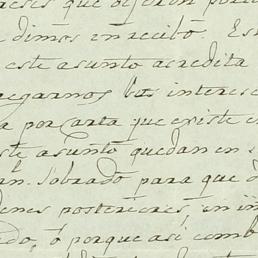 eses que dejeron por
dimos en recibo. Es
este asunto acredita
egarnos los interese
a por carta que existe e
ste asunto quedan en s
n. Sobrado para que d
enes posteriores, en in
do, ó porque asi comb